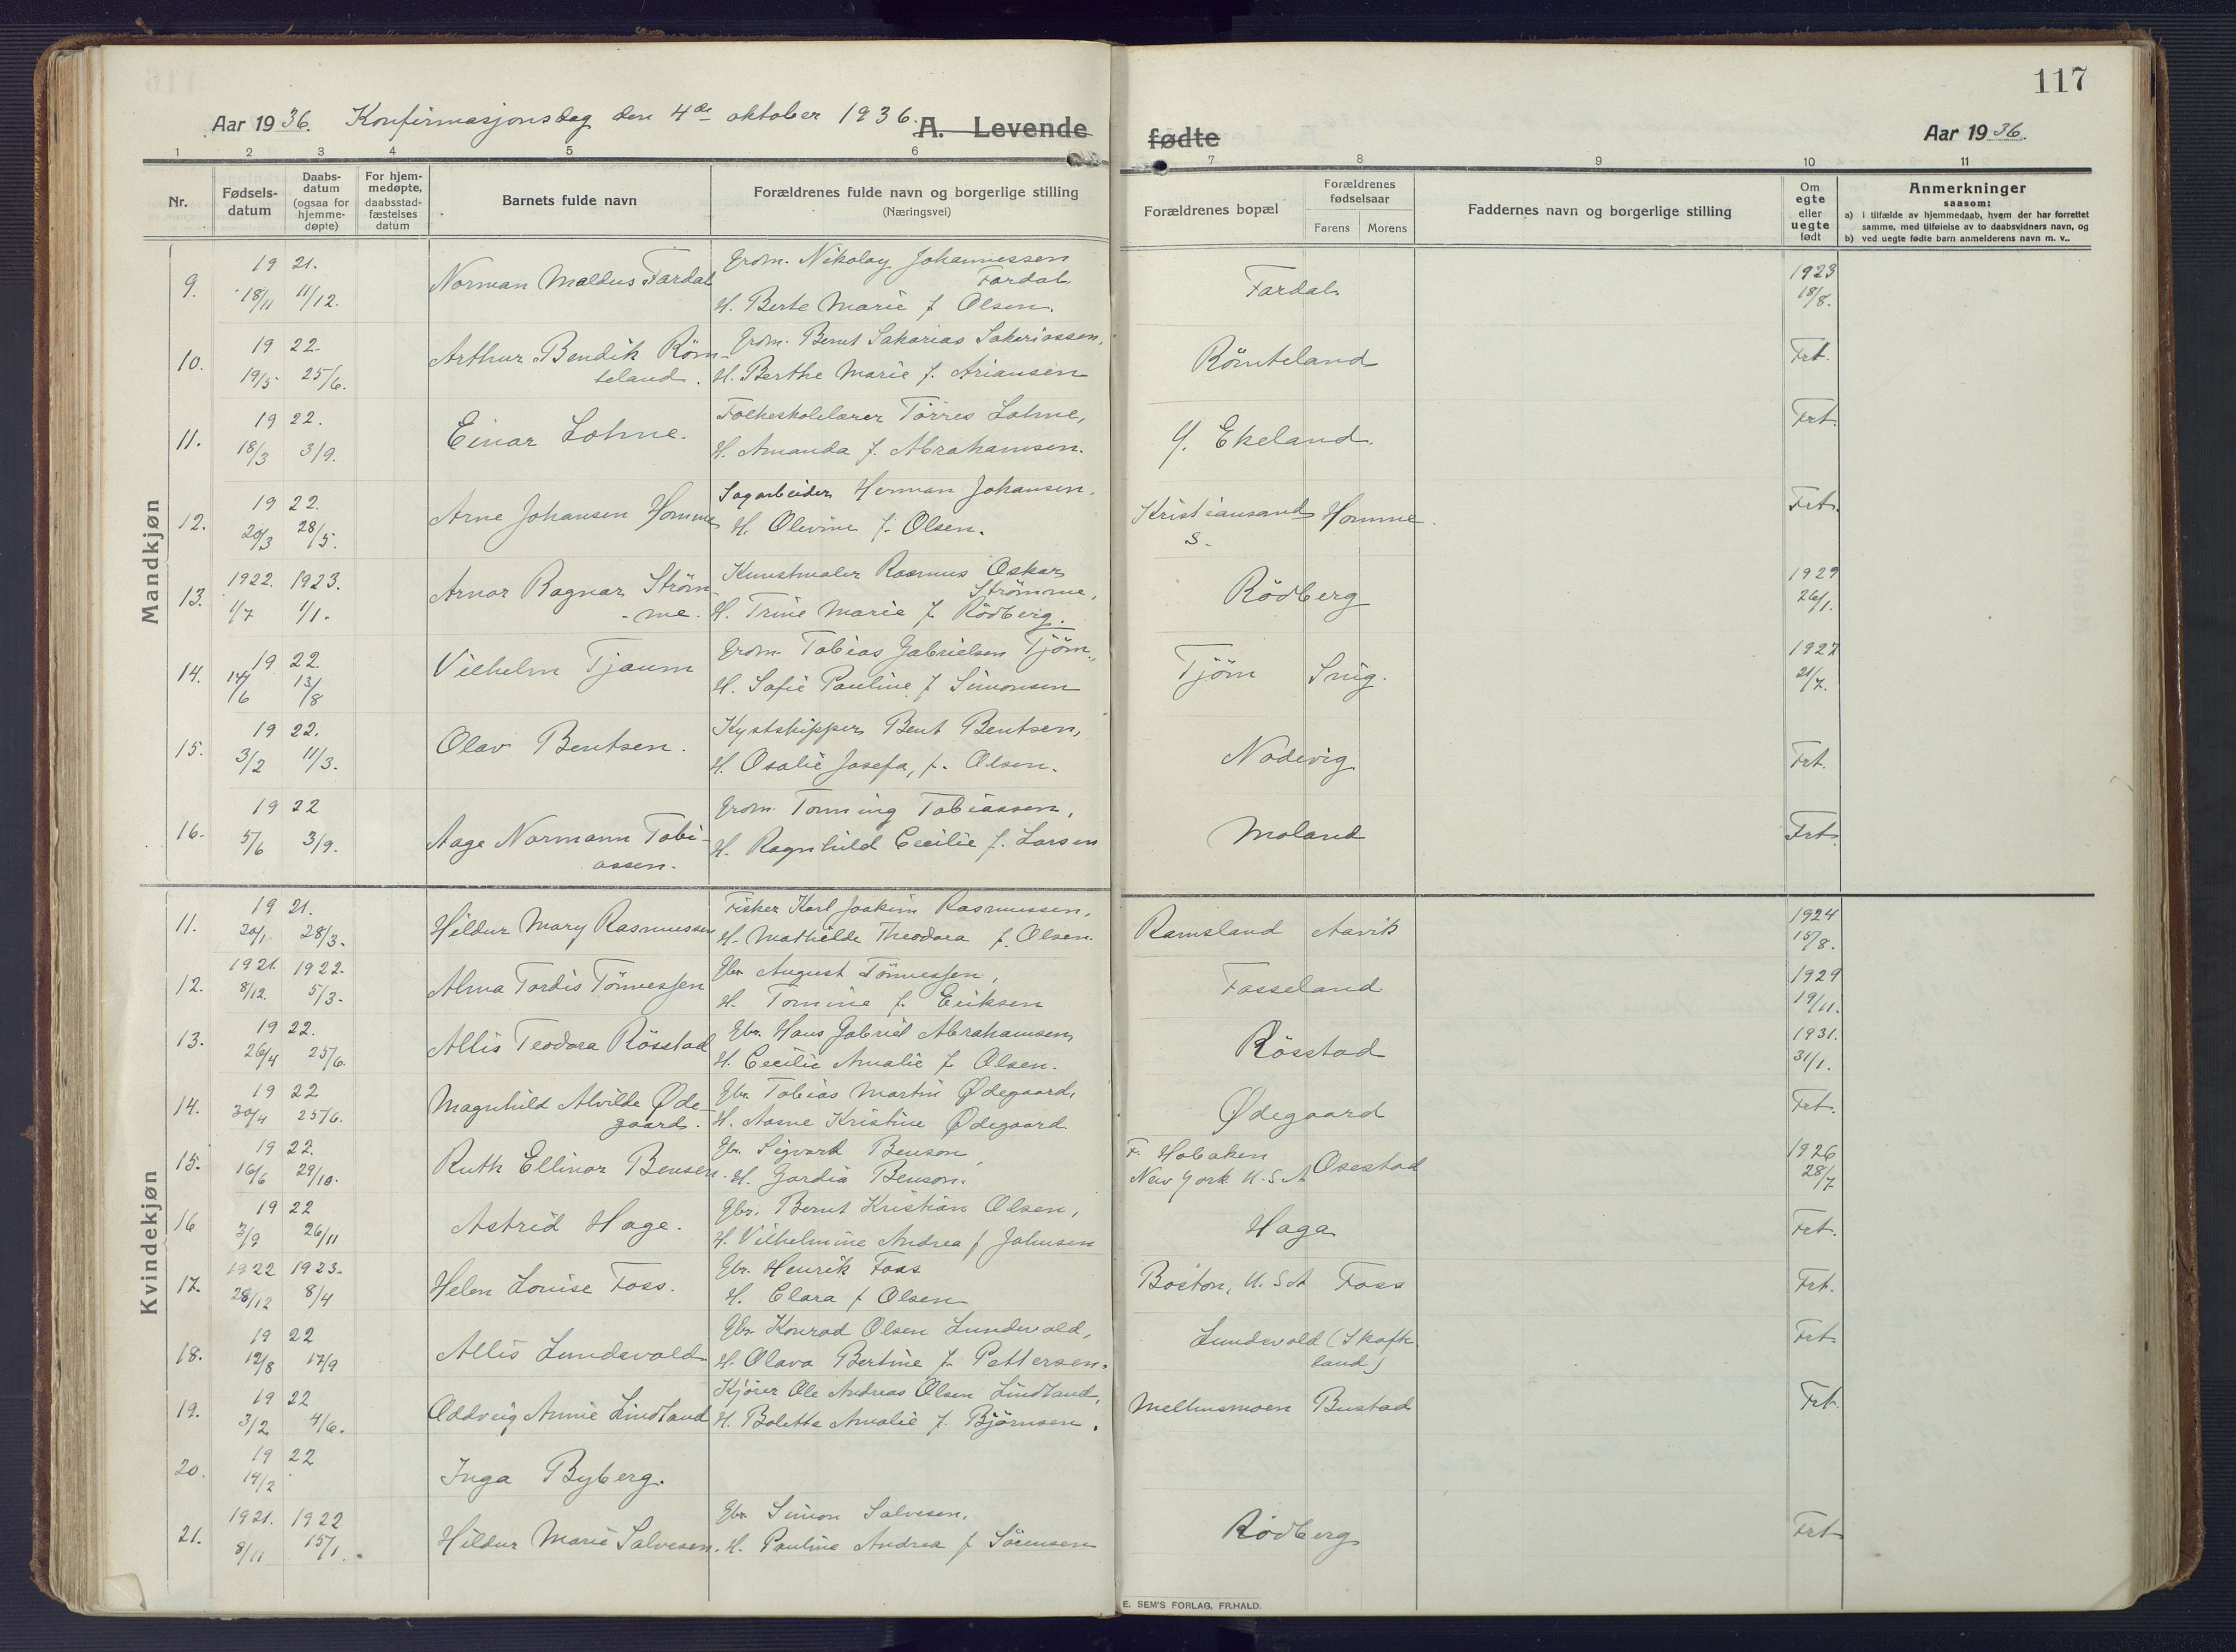 117
Aar 1936. Konfirmasjonsdag den 4de oktober 1936. A. Levende
fødte Aar 1936.
1 2 3 4 5 6 7 8 9 10 11
Nr.
Fødsels-
datum
Daabs-
datum
(ogsaa for
hjemme-
døpte)
For hjem-
medøpte,
daabsstad-
fæstelses
datum
Barnets fulde navn
Forældrenes fulde navn og borgerlige stilling
(Næringsvei)
Forældrenes bopæl
Forældrenes
fødselsaar
Farens Morens
Faddernes navn og borgerlige stilling
Om
egte
eller
uegte
født
Anmerkninger
saasom:
a) i tilfælde av hjemmedaab, hvem der har forrettet
samme, med tilføielse av to daabsvidners navn, og
b) ved uegte fødte barn anmelderens navn m. v..
Mandkjøn
9. 19 21. 18/11 11/12. Norman Maldus Fardal
Grdm. Nikolay Johannessen
Fardal,
H. Berte Marie f Olsen.
Fardal. 1923 18/8.
10. 19 22. 19/5 25/6. Arthur Bendik Röm-
teland.
Grdm. Bernt Sakarias Sakariassen,
H. Berthe Marie f. Ariansen
Römteland Frt.
11. 19 22. 18/3 3/9. Einar Lohne.
Folkeskolelærer Törres Lohne,
H. Amanda f. Abrahamsen.
Y. Ekeland. Frt.
12. 19 22. 20/3 28/5. Arne Johansen Homme
Sagarbeider Herman Johansen,
H. Olivine f. Olsen.
Kristiansand Homme.
S.
Frt.
13. 1922. 1923. 1/7 1/1. Arnor Ragnar Ström-
-me.
Kunstmaler Rasmus Oskar
Strömme,
H. Trine Marie f. Rödberg.
Rödberg 1929 26/1.
14. 19 22. 14/6 13/8 Vilhelm Tjaum
Grdm. Tobias Gabrielsen Tjöm,
H. Sofie Pauline f Simonsen
Tjöm Snig. 1927 21/7.
15. 19 22. 3/2 11/3. Olav Bentsen.
Kystskipper Bent Bentsen,
H. Osalie Josefa, f. Olsen.
Nodevig Frt.
16. 19 22 5/6 3/9. Aage Normann Tobi-
assen.
Grdm. Tonning Tobiassen,
H. Ragnhild Cecilie f. Larsen
Moland Frt.
Kvindekjøn
11. 19 21. 20/1. 28/3. Hildur Mary Rasmussen
Fisker Karl Joakim Rasmussen,
H. Mathilde Theodora f. Olsen.
Ramsland Aavik 1924 15/8.
12. 1921. 1922. 8/12. 5/3. Alma Tordis Tönnessen
Gbr. August Tönnessen,
H. Tomine f. Eriksen
Fosseland 1929 19/11.
13. 19 22. 26/4 25/6. Allis Teodora Rösstad
Gbr. Hans Gabriel Abrahamsen,
H. Cecilie Amalie f Olsen.
Rösstad 1931. 31/1.
14. 19 22 30/4 25/6. Magnhild Alvilde Øde-
gaard.
Gbr. Tobias Martin Ødegaard,
H. Aasne Kristine Ødegaard
Ødegaard Frt.
15. 19 22. 16/6 29/10. Ruth Ellinor Bensen.
Gbr. Sigvard Benson,
H. Gardia Benson.
F. Hoboken
New York U.S.A Osestad 1926 28/7
16 19 22 3/9 26/11 Astrid Hage.
Gbr. Bernt Kristian Olsen,
H. Vilhelmine Andrea f Johnsen
Haga Frt.
17. 1922 1923. 28/12 8/4 Helen Louise Foss.
Gbr. Henrik Foss
H. Clara f Olsen
Boston, U.S.A Foss Frt.
18. 19 22 12/8 17/9 Allis Lundevold.
Gbr. Konrad Olsen Lundevold,
H. Olava Bertine f. Pettersen.
Lundevold (Skofte
land) Frt
19. 19 22 3/2 4/6. Oddveig Annie Lindland
Kjörer Ole Andreas Olsen Lindland,
H. Bolette Amalie f. Björnsen.
Melhusmoen Bustad Frt.
20. 19 22 14/2 Inga Byberg.
21. 1921. 1922 8/11 15/1. Hildur Marie Salvesen.
Gbr. Simon Salvesen,
H. Pauline Andrea f Sörensen
Rödberg Frt
E. SEM'S FORLAG, FR.HALD.